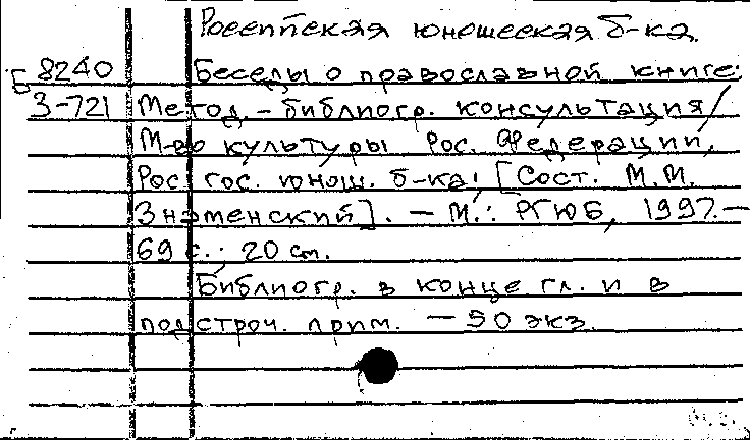 Российская юношеская б-ка.
Б 8240 Беседы о православной книге:
3-721 Метод.-библиогр. консультация/
М-во культуры Рос. Федерации,
Рос. гос. юнош. б-ка; [Сост. М.М.
Знаменский]. — М.: РГЮБ, 1997. —
69 с.; 20 см.
Библиогр. в конце гл. и в
подстроч. прим. — 50 экз.